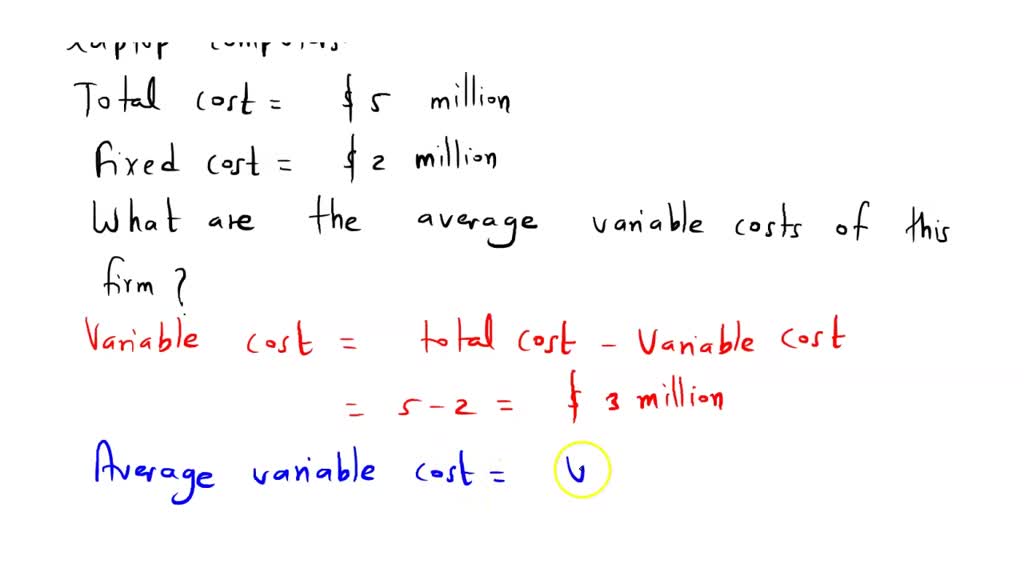 Total cost = $ 5 million
fixed cost = $ 2 million
What are the average variable costs of this
firm ?
Variable cost = total cost - Variable cost
= 5 - 2 = $ 3 million
Average variable cost = V